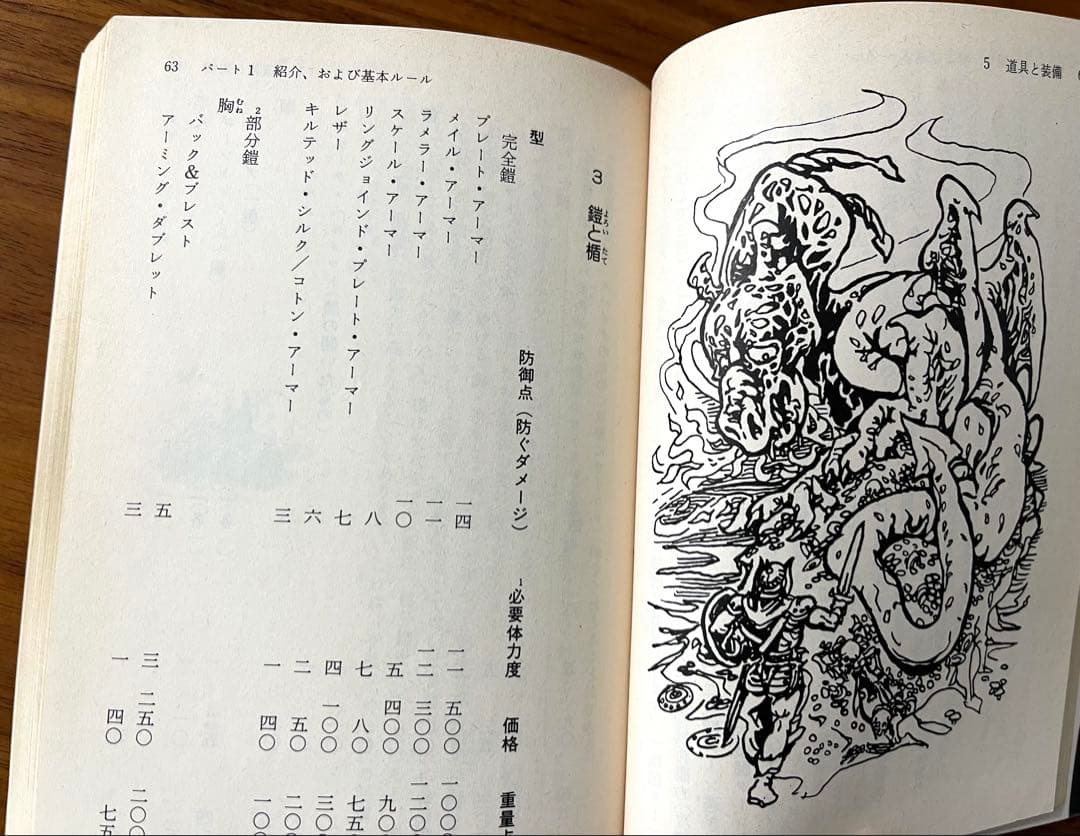 5 道具と装備
63 パート1 紹介、および基本ルール
3 鎧と楯
よろい たて
型 防御点（防ぐダメージ） 1必要体力度 価格 重量
完全鎧
プレート・アーマー 一四 一一 五〇〇 一〇〇〇
メイル・アーマー 一一 一二 三〇〇 一二〇
ラメラー・アーマー 一〇 五 四〇〇 九〇
スケール・アーマー 八 七 八〇 七五
リングジョインド・プレート・アーマー 七 四 一〇〇 三〇
レザー 六 二 五〇 二〇〇
キルテッド・シルク／コトン・アーマー 三 一 四〇 一〇〇
2部分鎧
胸
むね
バック＆ブレスト 五 三 二五〇 二〇〇
アーミング・ダブレット 三 一 四〇 七五